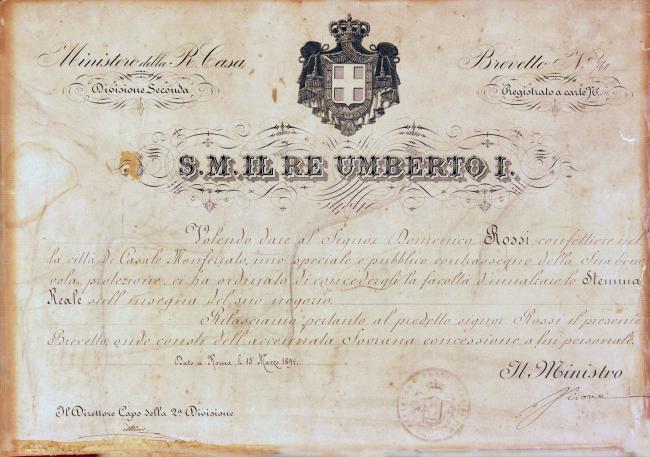 Ministero della R. Casa
Divisione Seconda
Brevetto N.
Registrato a carte N.
S. M. IL RE UMBERTO I.
Volendo dare al Signor Domenico Rossi, confettiere nel
la città di Casale Monferrato, uno speciale e pubblico contrassegno della Sua bene
vola protezione, ci ha ordinato di concedergli la facoltà d'innalzare lo Stemma
Reale sull'insegna del suo negozio.
Rilasciamo pertanto al predetto signor Rossi il presente
Brevetto, onde consti dell'accennata Sovrana concessione a lui personale.
Dato a Roma, le 15 Marzo 1891.
Il Ministro
Il Direttore Capo della 2ª Divisione